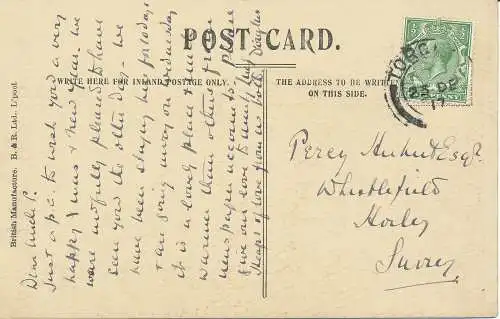 POST CARD.
WRITE HERE FOR INLAND POSTAGE ONLY.
THE ADDRESS TO BE WRITTEN
ON THIS SIDE.
British Manufacture. B. & R. Ltd., L'pool.
Dear Uncle P.
Just a p.c. to wish you a very
happy Xmas & New Year. We
were awfully pleased to have
seen you the other day - we
have been staying here for 10 days
& am going away on Wednesday
it is a lovely place & much
warmer than other places from
newspaper accounts.
Give our love to aunty
Heaps of love from us both Douglas
Percy Esqre.
Whistlefield
Horley
Surrey
TORQ
23 DE
17